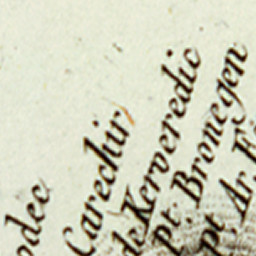 odec
Carechir
de Kerveredic
pt. Bronegen
pt. Ar. F